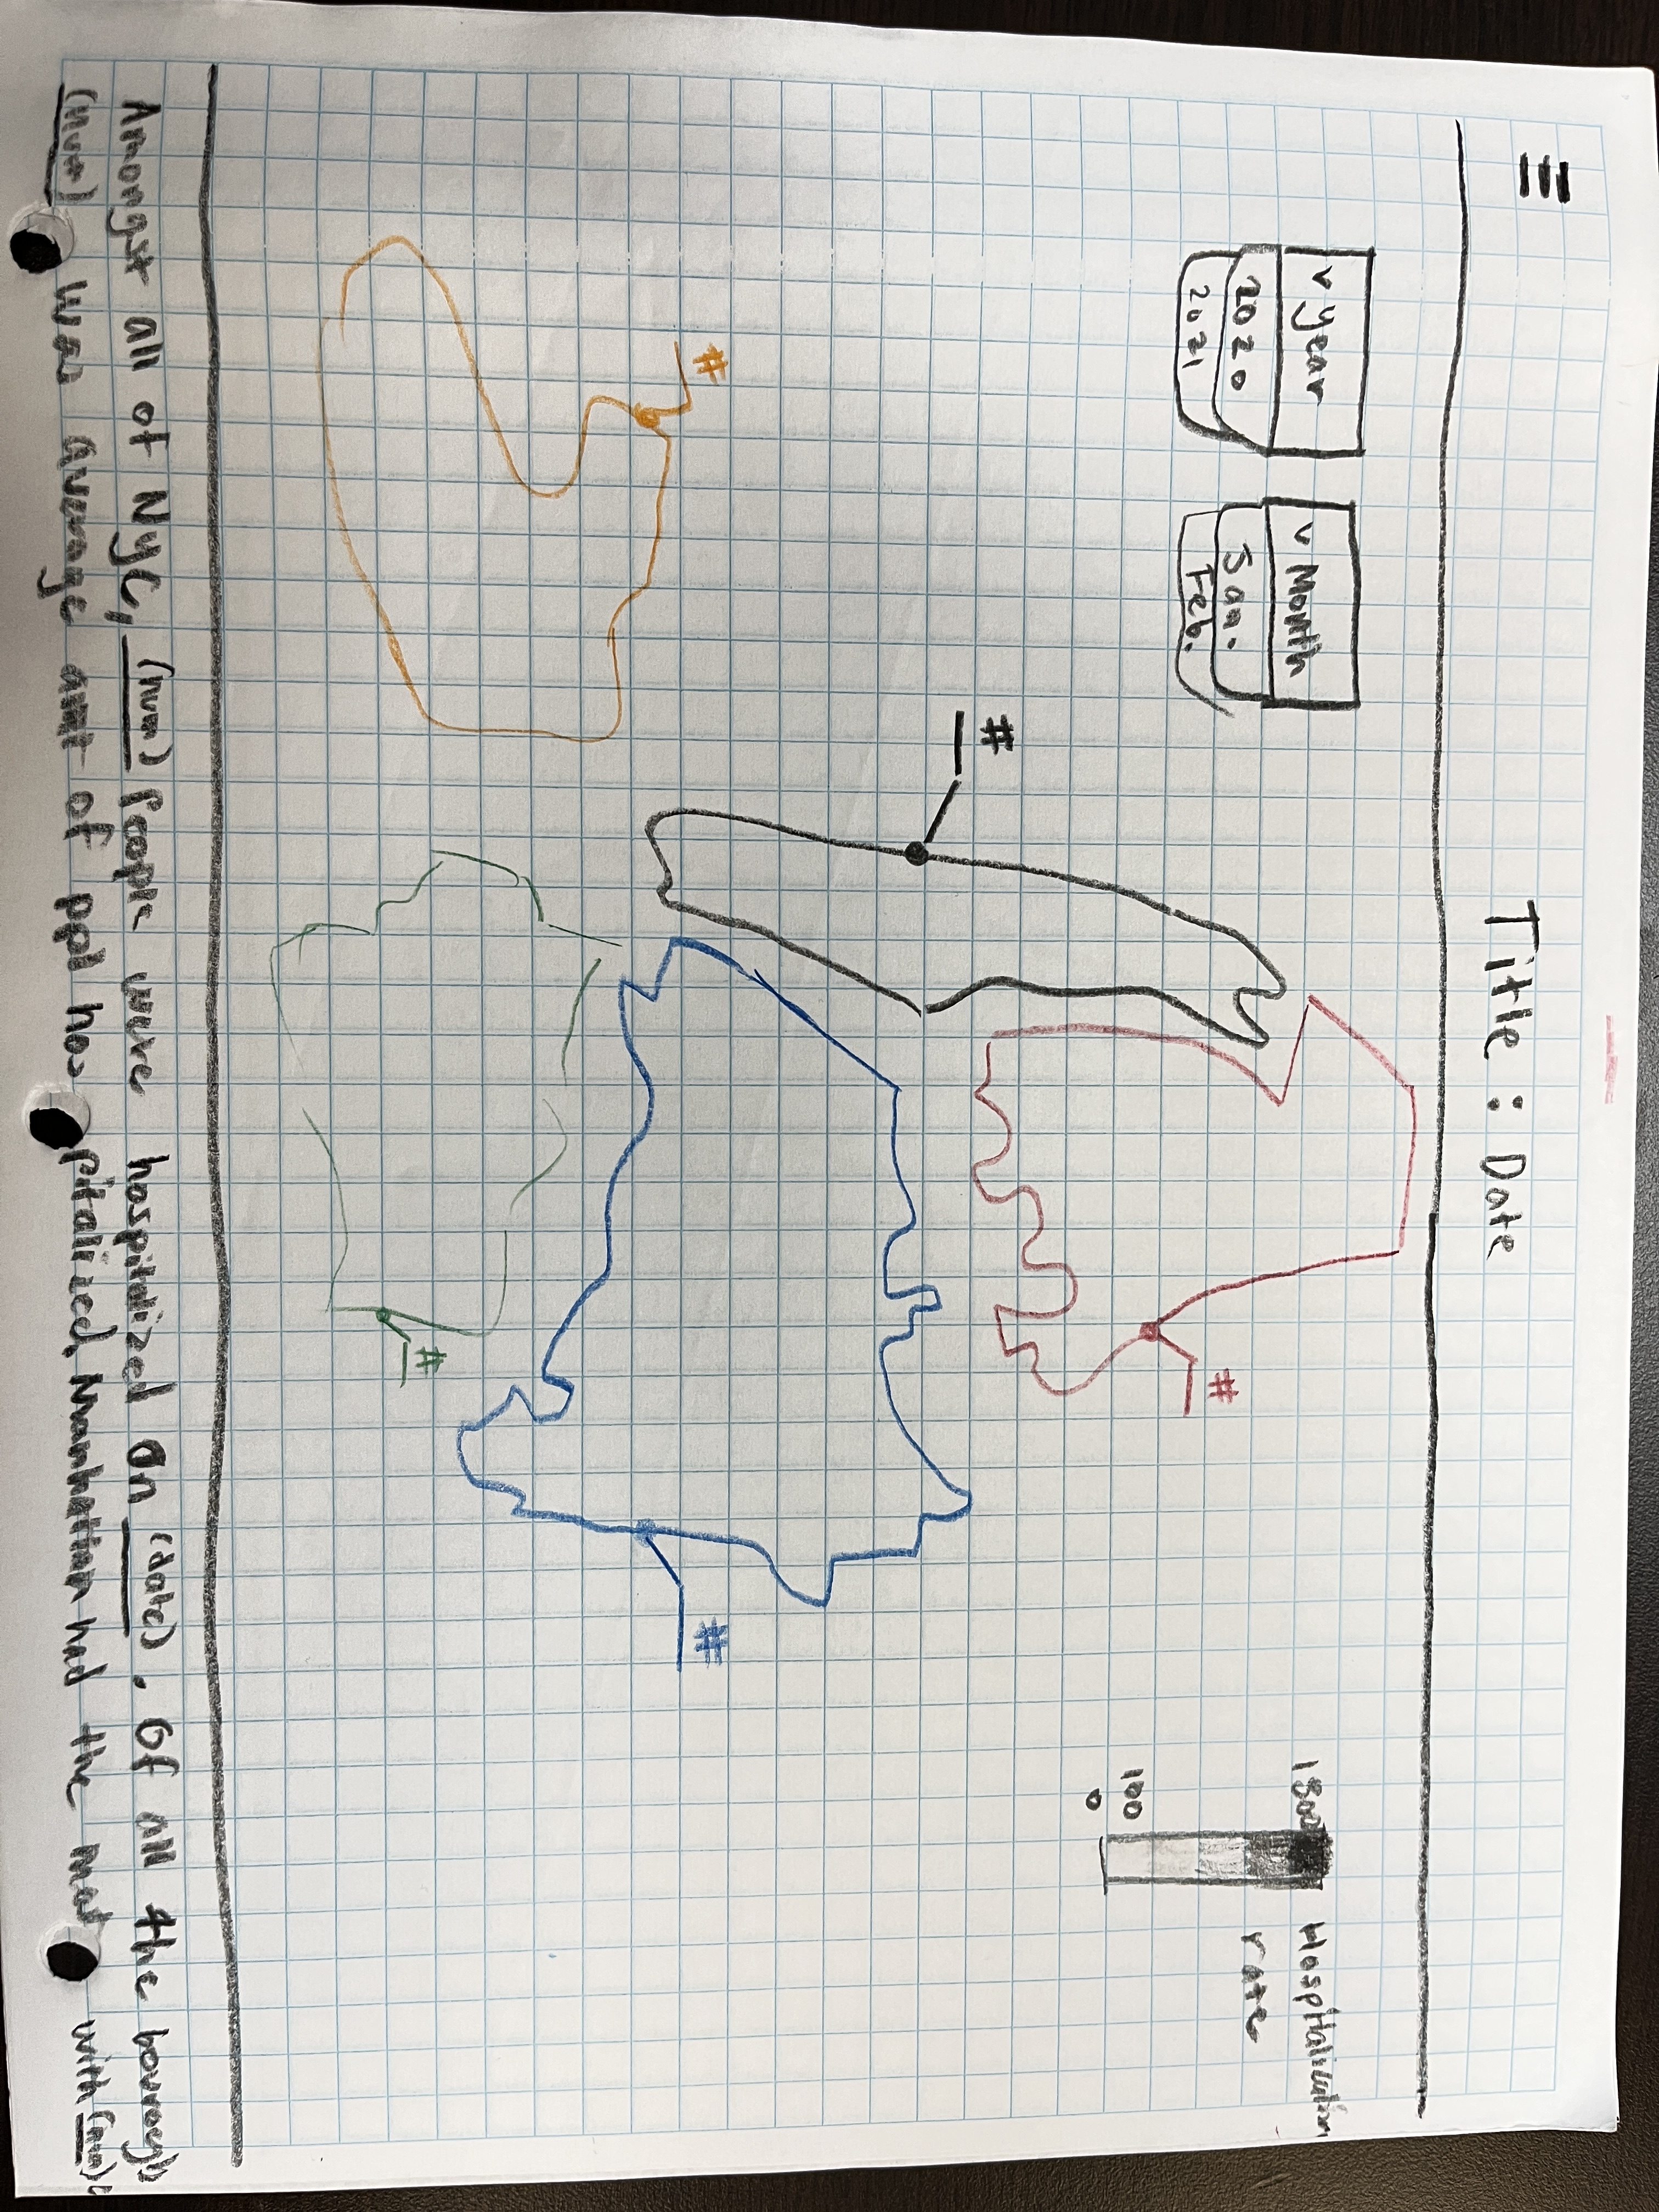 Title : Date
v year
2020
2021
v Month
Jan.
Feb.
Hospitalization
rate
1800
100
0
#
#
#
#
#
Amongst all of NYC, (num) People were hospitalized on (date). Of all the
(num) was average amt of ppl hospitalized, Manhattan had the most with (num)